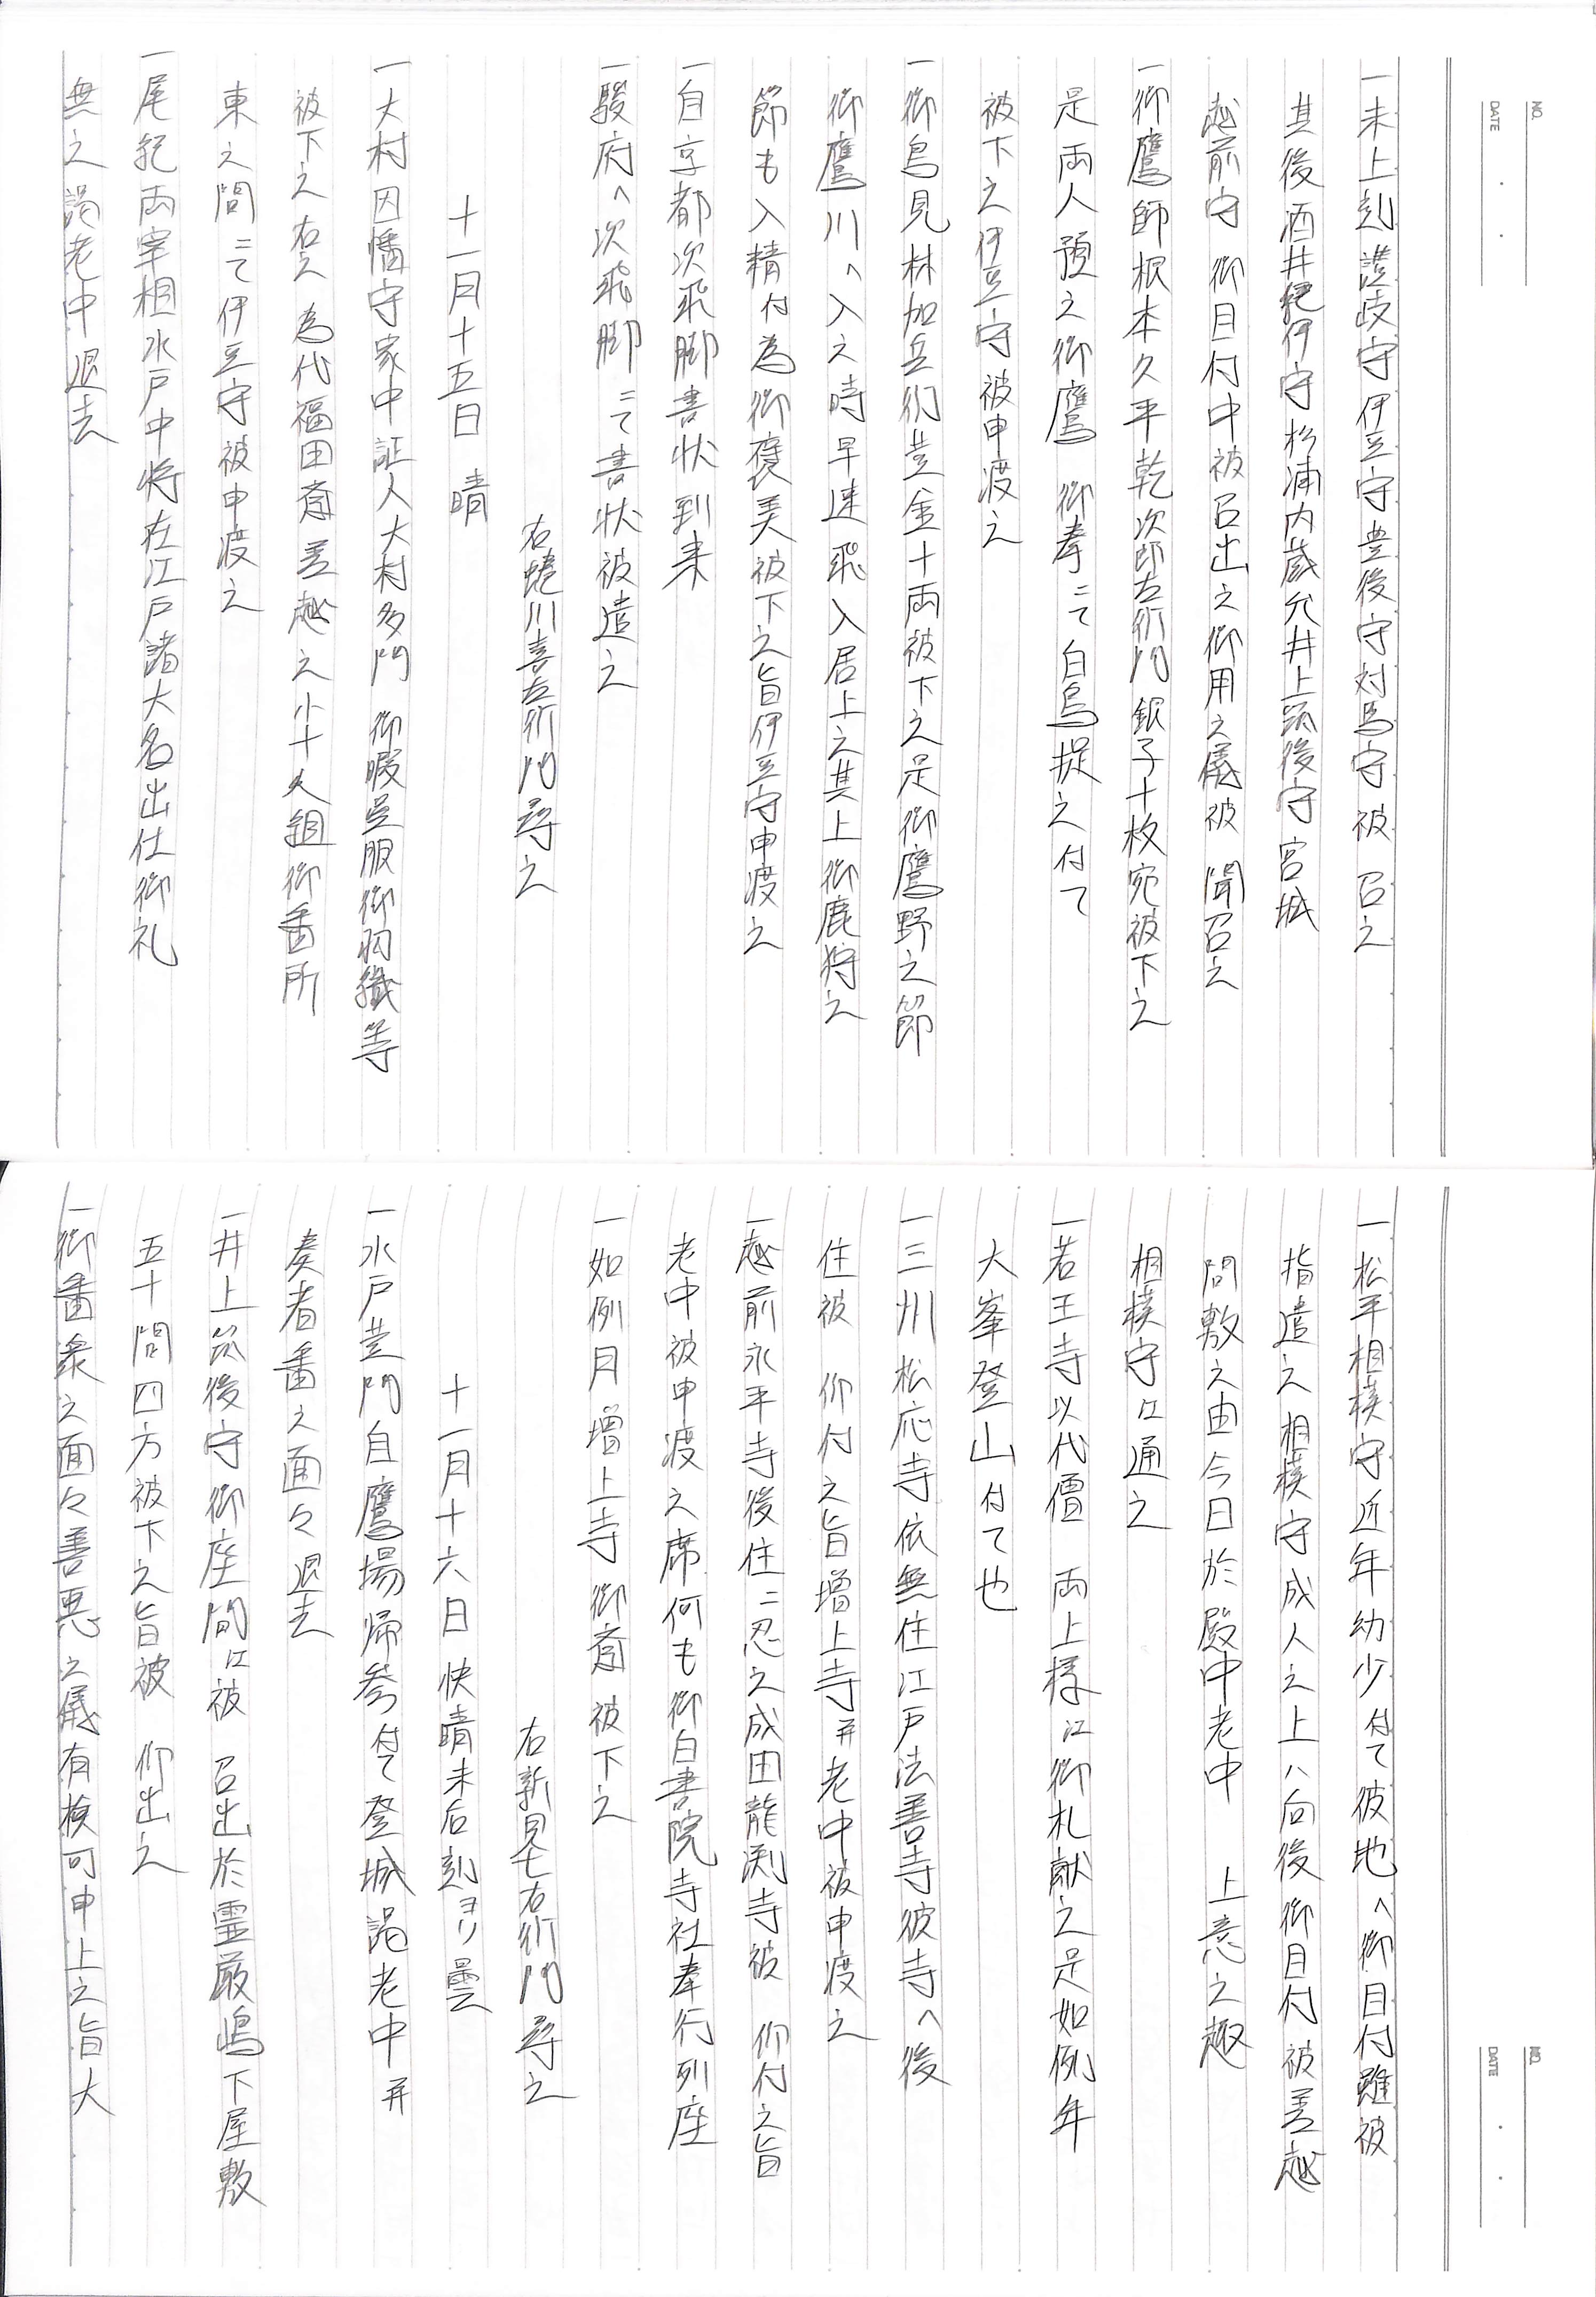 NO.
DATE
一未上刻讃岐守伊豆守豊後守対馬守被 召之
其後酒井紀伊守杉浦内蔵允井上筑後守宮城
越前守 御目付中被召出之御用之儀被 聞召之
一御鷹師根本久平乾次郎左衛門 銀子十枚宛被下之
是両人預之御鷹 御拳ニて白鳥捉之付て
被下之伊豆守被申渡之
一御鳥見林加兵衛黄金十両被下之是御鷹野之節
御鷹川へ入之時早速飛入居上之其上御鹿狩之
節も入精付為御褒美被下之旨伊豆守申渡之
一自京都次飛脚書状到来
一駿府へ次飛脚ニて書状被遣之
右蜷川喜左衛門尋之
十一月十五日 晴
一大村因幡守家中証人大村多門 御暇呉服御羽織等
被下之右之為代福田齎差越之小十人組御番所
東之間ニて伊豆守被申渡之
一尾紀両宰相水戸中将在江戸諸大名出仕御礼
無之謁老中退去
NO.
DATE
一松平相模守近年幼少付て彼地へ御目付雖被
指遣之相模守成人之上ハ向後御目付被差越
間敷之由今日於殿中老中 上意之趣
相模守江通之
一若王寺以代僧 両上様江御札献之是如例年
大峯登山付て也
一三州松応寺依無住江戸法善寺彼寺へ後
住被 仰付之旨増上寺并老中被申渡之
一越前永平寺後住ニ忍之成田龍渕寺被 仰付之旨
老中被申渡之席何も御白書院寺社奉行列座
一如例月増上寺 御斎被下之
右新見七右衛門尋之
十一月十六日 快晴未后刻ヨリ曇
一水戸黄門自鷹場帰参付て登城謁老中并
奏者番之面々退去
一井上筑後守御座間江被 召出於霊厳嶋下屋敷
五十間四方被下之旨被 仰出之
一御番衆之面々善悪之儀有検可申上之旨大